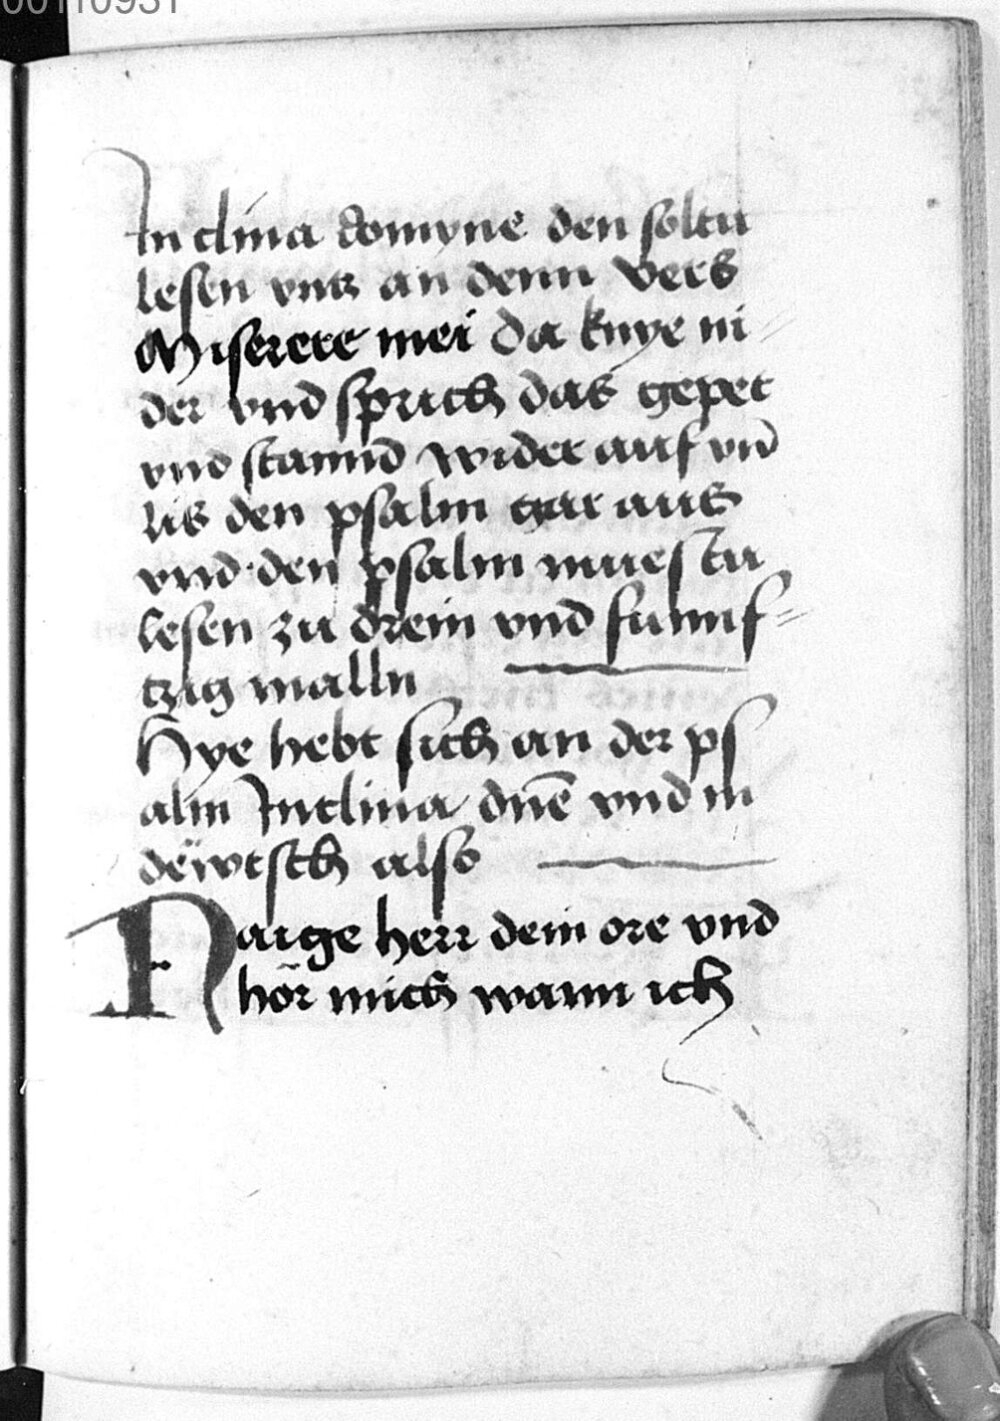 In clina domyne den soltu
lesen vntz an denn vers
Miserere mei da knye ni-
der vnd sprich das gepet
vnd stannd wider auf vnd̄
lis den psalm gar aus
vnd den psalm muestu
lesen zu drein vnd funnf-
tzig malln
Hye hebt sich an der ps
alm Inclina dn̄e vnd in
dëwtsch also
Naige herr dein ore vnd
hör mich wann ich